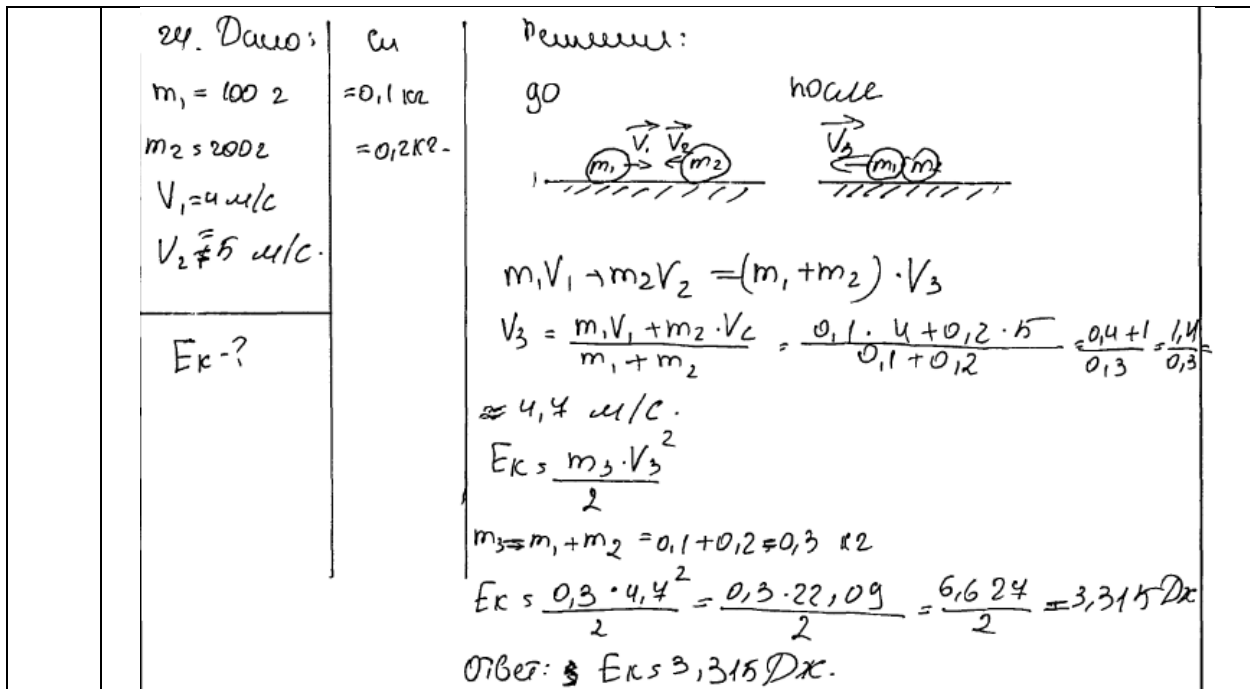 24. Дано:
m₁ = 100 г
m₂ = 200 г
V₁ = 4 м/с
V₂ = 5 м/с.
Eк -?
Си
= 0,1 кг
= 0,2 кг.
Решение:
до
после
V₁ V₂
m₁ m₂
V₃
m₁ m₂
m₁V₁ + m₂V₂ = (m₁ + m₂) · V₃
V₃ = (m₁V₁ + m₂ · V₂)/(m₁ + m₂) = (0,1 · 4 + 0,2 · 5)/(0,1 + 0,2) = (0,4 + 1)/0,3 = 1,4/0,3 =
≈ 4,7 м/с.
Eк = (m₃ · V₃²)/2
m₃ = m₁ + m₂ = 0,1 + 0,2 = 0,3 кг
Eк = (0,3 · 4,7²)/2 = (0,3 · 22,09)/2 = 6,627/2 = 3,315 Дж
Ответ: Eк = 3,315 Дж.